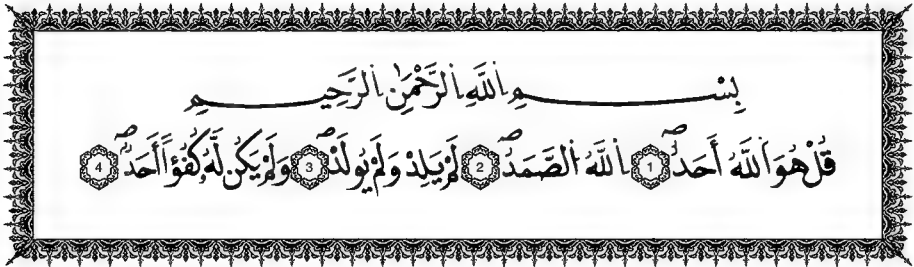 بِسْمِ اللَّهِ الرَّحْمَٰنِ الرَّحِيمِ
قُلْ هُوَ اَللَّهُ أَحَدٌۖ 1 اِللَّهُ اُلصَّمَدُۖ 2 لَمْ يَلِدْ وَلَمْ يُولَدْۖ 3 وَلَمْ يَكُن لَّهُۥ كُفُؤاً أَحَدٌۖ 4